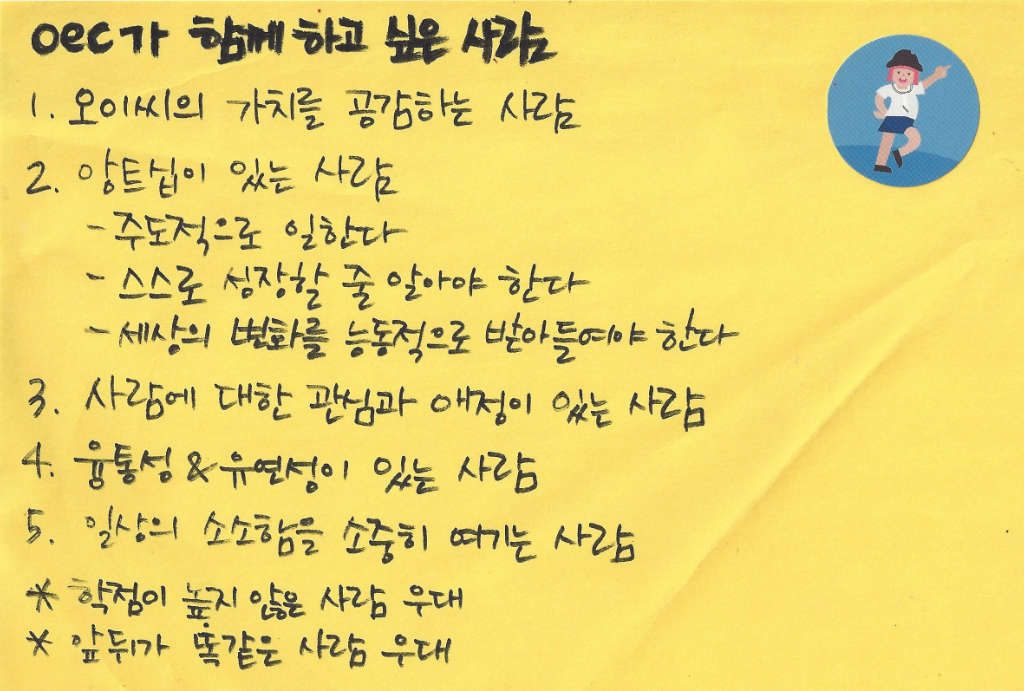 oec가 함께 하고 싶은 사람
1. 오이씨의 가치를 공감하는 사람
2. 앙트십이 있는 사람
- 주도적으로 일한다
- 스스로 성장할 줄 알아야 한다
- 세상의 변화를 능동적으로 받아들여야 한다
3. 사람에 대한 관심과 애정이 있는 사람
4. 융통성 & 유연성이 있는 사람
5. 일상의 소소함을 소중히 여기는 사람
* 학점이 높지 않은 사람 우대
* 앞뒤가 똑같은 사람 우대